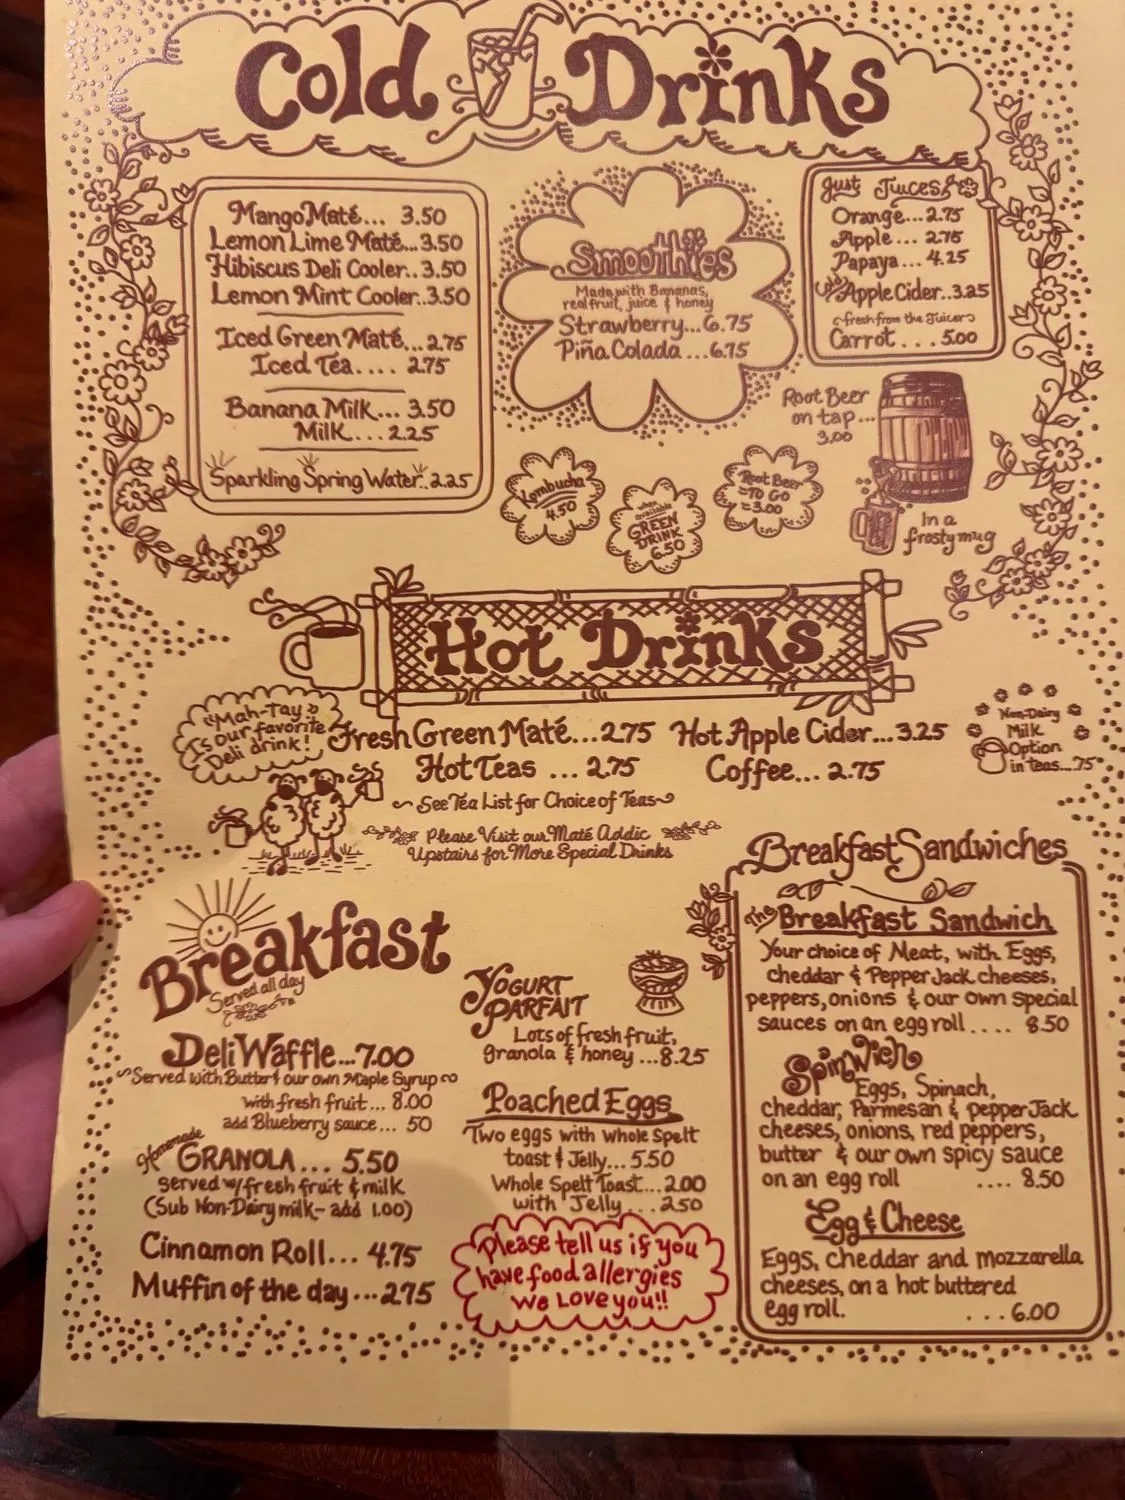 Cold Drinks
Mango Maté... 3.50
Lemon Lime Maté...3.50
Hibiscus Deli Cooler..3.50
Lemon Mint Cooler..3.50
Iced Green Maté...2.75
Iced Tea.... 2.75
Banana Milk... 3.50
Milk... 2.25
Sparkling Spring Water..2.25
Smoothies
Made with Bananas,
real fruit, juice & honey
Strawberry...6.75
Piña Colada ...6.75
Just Juices
Orange...2.75
Apple... 2.75
Papaya... 4.25
Apple Cider..3.25
fresh from the Juicer
Carrot... 5.00
Root Beer
on tap...
3.00
In a
frosty mug
Kombucha
4.50
when
available
GREEN
DRINK
6.50
Root Beer
TO GO
3.00
Hot Drinks
"Mah-Tay"
Is our favorite
Deli drink!
Fresh Green Maté...2.75
Hot Apple Cider...3.25
Hot Teas ... 2.75
Coffee... 2.75
Non-Dairy
Milk
Option
in teas...75
See Tea List for Choice of Teas
Please Visit our Maté Addic
Upstairs for More Special Drinks
Breakfast
Served all day
Deli Waffle...7.00
Served with Butter & our own Maple Syrup
with fresh fruit... 8.00
add Blueberry sauce... 50
Homemade
GRANOLA... 5.50
served w/fresh fruit & milk
(Sub Non-Dairy milk- add 1.00)
Cinnamon Roll... 4.75
Muffin of the day...2.75
YOGURT
PARFAIT
Lots of fresh fruit,
granola & honey ...8.25
Poached Eggs
Two eggs with whole spelt
toast & Jelly... 5.50
Whole Spelt Toast...2.00
with Jelly... 2.50
Please tell us if you
have food allergies
We Love you!!
Breakfast Sandwiches
The Breakfast Sandwich
Your choice of Meat, with Eggs,
cheddar & Pepper Jack cheeses,
peppers, onions & our own special
sauces on an egg roll.... 8.50
Spinwich
Eggs, Spinach,
cheddar, Parmesan & pepper Jack
cheeses, onions, red peppers,
butter & our own spicy sauce
on an egg roll .... 8.50
Egg & Cheese
Eggs, cheddar and mozzarella
cheeses, on a hot buttered
egg roll. ...6.00